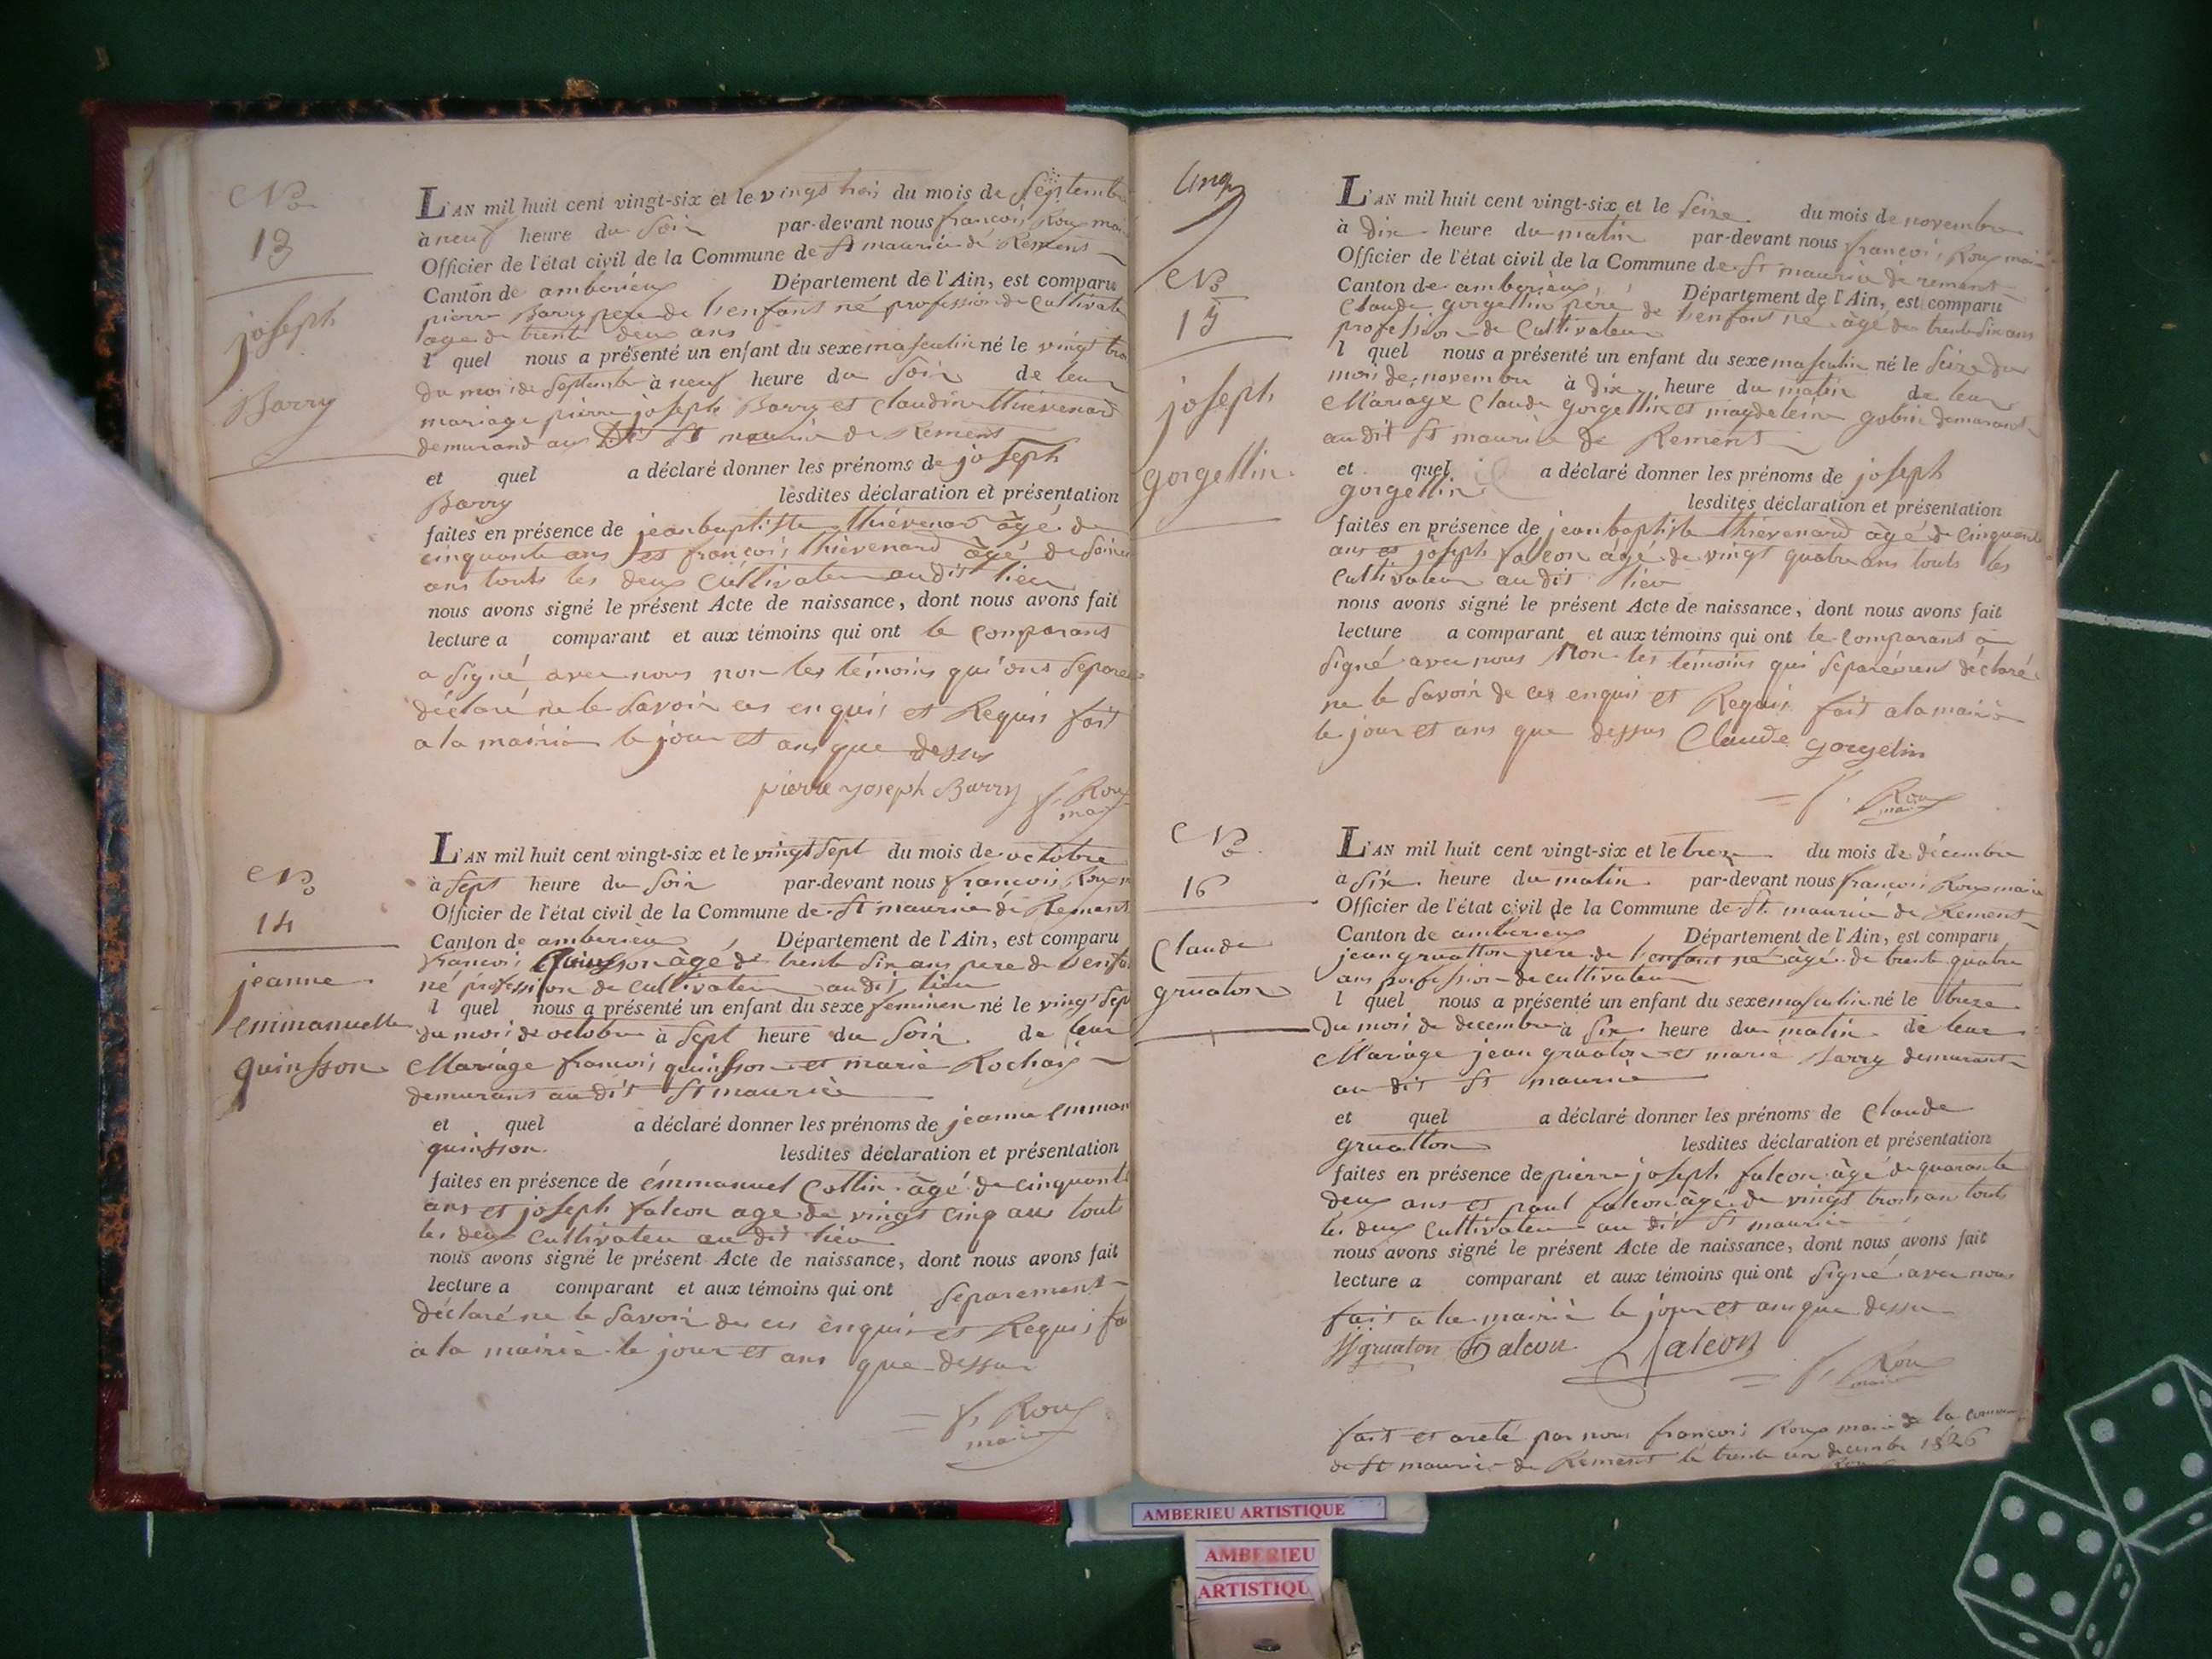 No
13
joseph
Barry
L'AN mil huit cent vingt-six et le vingt trois du mois de septembre
à neuf heure du soir par-devant nous françois Roux maire
Officier de l'état civil de la Commune de St maurice de Remens
Canton de amberieux Département de l'Ain, est comparu
pierre Barry pere de l'enfant né profession de Cultivate
age de trente deux ans
l quel nous a présenté un enfant du sexe masculin né le vingt tro
du moi de septembre à neuf heure du soir de leur
mariage pierre joseph Barry et Claudine thiévenard
demurand au Dit St maurice de Remens
et quel a déclaré donner les prénoms de joseph
Barry lesdites déclaration et présentation
faites en présence de jean baptiste thiévenard âgé de
cinquante ans et françois thiévenard âgé de
ans touts les deux Cultivateur au dit lieu
nous avons signé le présent Acte de naissance, dont nous avons fait
lecture a comparant et aux témoins qui ont le comparant
a signé avec nous non les témoins qui ont separe
déclaré ne le savoir ces enquis et Requis fait
a la mairie le jour et ans que dessus
pierre joseph Barry f. Roux
maire
No
14
jeanne
emmanuelle
quinsson
L'AN mil huit cent vingt-six et le vingt sept du mois de octobre
à sept heure du soir par-devant nous françois Roux m
Officier de l'état civil de la Commune de St maurice de Remens
Canton de amberieux Département de l'Ain, est comparu
francois quinsson âgé de trente six ans pere de l'enfa
né profession de cultivateur au dit lieu
l quel nous a présenté un enfant du sexe feminen né le vingt sep
du moi de octobre à sept heure du soir de leur
Mariage françois quinsson et marie Rochay
demurans au dit St maurice
et quel a déclaré donner les prénoms de jeanne emman
quinsson lesdites déclaration et présentation
faites en présence de émmanuel Collin âgé de cinquante
ans et joseph falcon age de vingt cinq ans touts
les deux cultivateur au dit lieu
nous avons signé le présent Acte de naissance, dont nous avons fait
lecture a comparant et aux témoins qui ont separement
déclaré ne le savoir de ces enquis et Requis fa
a la mairie le jour et ans que dessus
f. Roux
maire
cinq
No
15
joseph
gorgellin
L'AN mil huit cent vingt-six et le seize du mois de novembre
à dix heure du matin par-devant nous françois Roux maire
Officier de l'état civil de la Commune de St maurice de remens
Canton de amberieux Département de l'Ain, est comparu
Claude gorgellin pére de l'enfant né âgé de trente six ans
profession de Cultivateur
l quel nous a présenté un enfant du sexe masculin né le seize du
moi de novembre à dix heure du matin de leur
Mariage Claude gorgellin et magdeleine gobin demurant
au dit St maurice de Remens
et quel a déclaré donner les prénoms de joseph
gorgellin lesdites déclaration et présentation
faites en présence de jean baptiste thiévenard âgé de cinquante
ans et joseph falcon âgé de vingt quatre ans touts les
cultivateur au dit lieu
nous avons signé le présent Acte de naissance, dont nous avons fait
lecture a comparant et aux témoins qui ont le comparant a
signé avec nous Non les témoins qui separément déclaré
ne le savoir de ces enquis et Requis fait a la mairie
le jour et ans que dessus Claude gorgelin
f. Roux
maire
No
16
Claude
gruaton
L'AN mil huit cent vingt-six et le treze du mois de décembre
a six heure du matin par-devant nous francois Roux maire
Officier de l'état civil de la Commune de St. maurice de Remens
Canton de amberieux Département de l'Ain, est comparu
jean gruatton pere de l'enfant né âgé de trente quatre
ans profession de cultivateur
l quel nous a présenté un enfant du sexe masculin né le treze
du moi de decembre à six heure du matin de leur
Mariage jean gruaton et marie Barry demurant
au dit St maurice
et quel a déclaré donner les prénoms de Claude
gruatton lesdites déclaration et présentation
faites en présence de pierre joseph falcon âgé de quarante
deux ans et paul falcon âge de vingt trois ans touts
les deux Cultivateur au dit St maurice
nous avons signé le présent Acte de naissance, dont nous avons fait
lecture a comparant et aux témoins qui ont signé avec nous
fait a la mairie le jour et ans que dessu
gruaton falcon falcon
f. Roux
maire
fait et areté par nous françois Roux maire de la commune
de St maurice de Remens le trente un decembre 1826
Roux
AMBERIEU ARTISTIQUE
AMBERIEU
ARTISTIQU